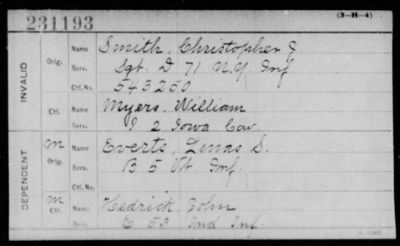 231193 (3-H-4)
INVALID
Orig. Name Smith, Christopher J
Serv. Sgt. D 71 N.Y. Inf
Ctf.No. 543250
Ctf. Name Myers, William
Serv. I 2 Iowa Cav
DEPENDENT
M Orig. Name Everts, Linas S.
Serv. B 5 Vt. Inf.
Ctf. No.
M Ctf. Name Hedrick, John
Serv. E 53 Ind Inf